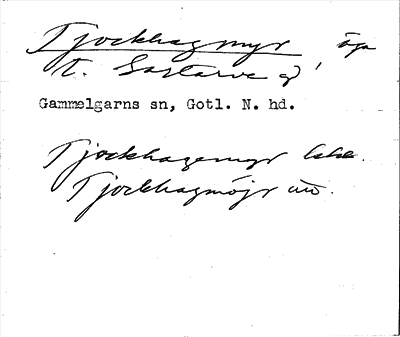 Tjockhagmyr, äga
t. Sartarve gd
Gammelgarns sn, Gotl. N. hd.
Tjockhagemyr lske.
Tjockhagmöjr uu.